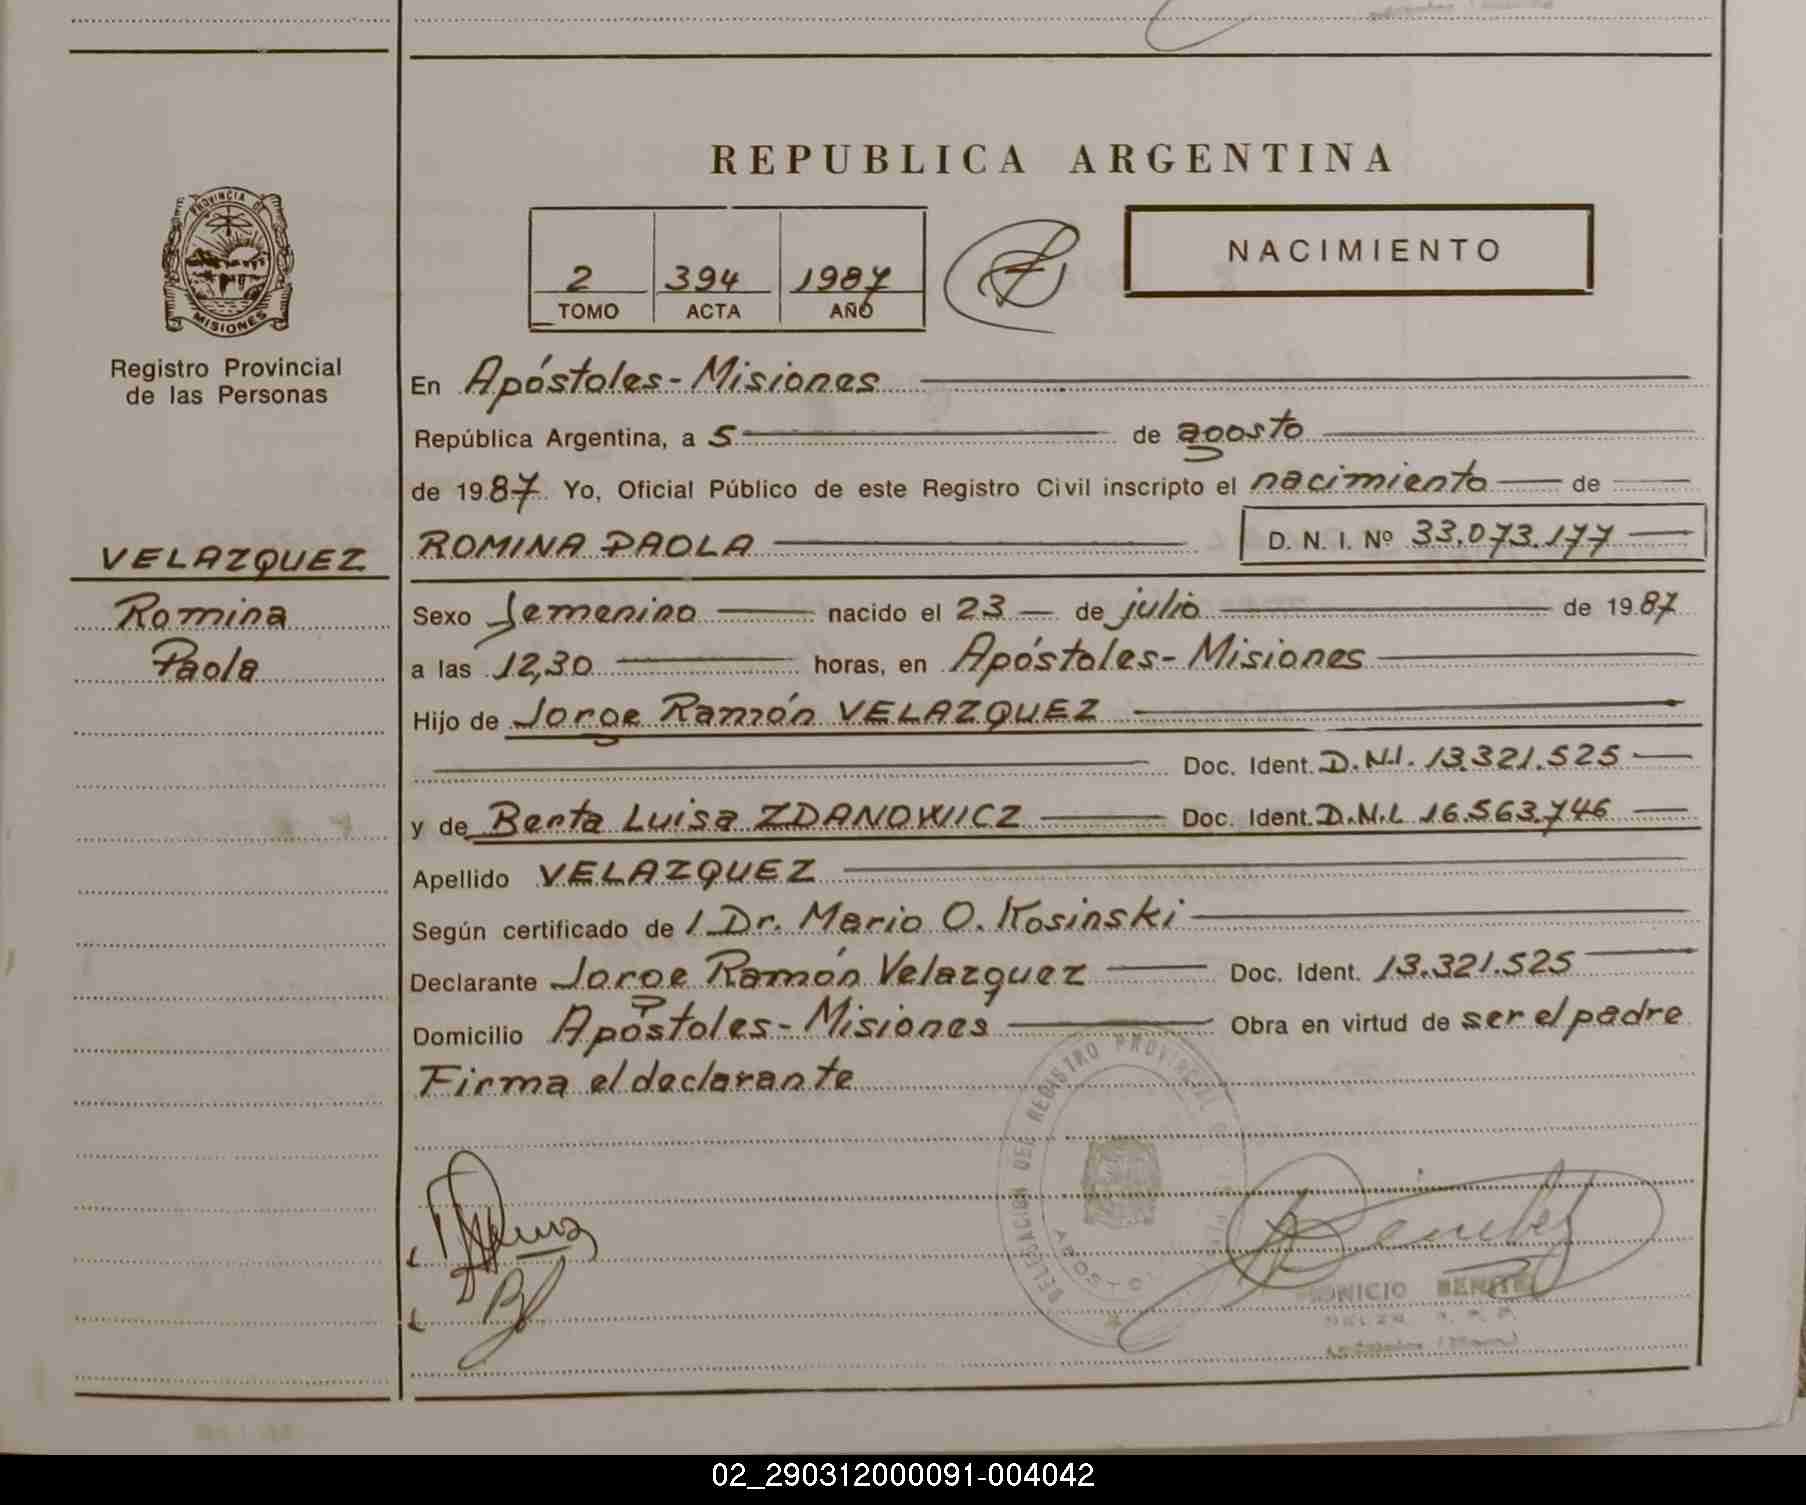 REPUBLICA ARGENTINA
PROVINCIA DE
MISIONES
Registro Provincial
de las Personas
2 394 1987
TOMO ACTA AÑO
NACIMIENTO
En Apóstoles - Misiones
República Argentina, a 5 de agosto
de 1987 Yo, Oficial Público de este Registro Civil inscripto el nacimiento de
VELAZQUEZ
Romina
Paola
ROMINA PAOLA D. N. I. Nº 33.073.177
Sexo femenino nacido el 23 de julio de 1987
a las 12,30 horas, en Apóstoles - Misiones
Hijo de Jorge Ramón VELAZQUEZ
Doc. Ident. D.N.I. 13.321.525
y de Berta Luisa ZDANOWICZ Doc. Ident. D.N.I. 16.563.746
Apellido VELAZQUEZ
Según certificado de 1 Dr. Mario O. Kosinski
Declarante Jorge Ramón Velazquez Doc. Ident. 13.321.525
Domicilio Apóstoles - Misiones Obra en virtud de ser el padre
Firma el declarante
DELEGACION DEL REGISTRO PROVINCIAL
BENITEZ
02_290312000091-004042